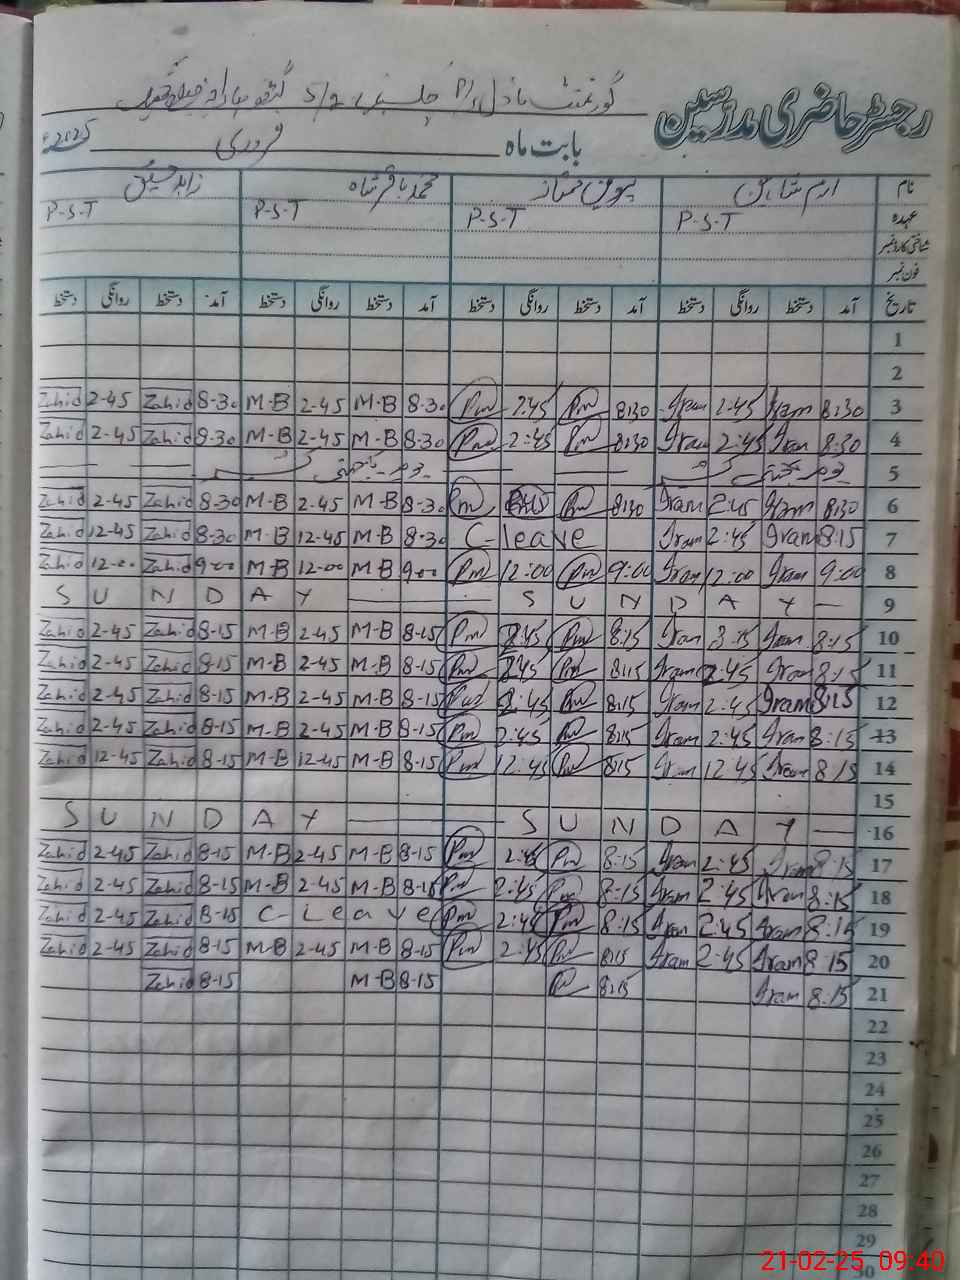 رجسٹر حاضری مدرسین
گورنمنٹ ماڈل
بابت ماہ فروری 2025ء
نام ارم شاہین پروین ممتاز محمد باقر شاہ زاہد حسین
عہدہ P-S-T P-S-T P-S-T P-S-T
شناختی کارڈ نمبر
فون نمبر
تاریخ آمد دستخط روانگی دستخط آمد دستخط روانگی دستخط آمد دستخط روانگی دستخط آمد دستخط روانگی دستخط
1
2
3 8:30 Iram 2:45 Iram 8:30 Pm 2:45 Pm 8-30 M-B 2-45 M-B 8-30 Zahid 2-45 Zahid
4 8:30 Iram 2:45 Iram 8:30 Pm 2:45 Pm 8-30 M-B 2-45 M-B 8-30 Zahid 2-45 Zahid
5 یوم یکجہتی کشمیر یوم یکجہتی کشمیر
6 8:30 Iram 2:45 Iram 8:30 Pm Pm 8-30 M-B 2-45 M-B 8-30 Zahid 2-45 Zahid
7 8:15 Iram 2:45 Iram C-leave 8-30 M-B 12-45 M-B 8-30 Zahid 12-45 Zahid
8 9:00 Iram 12:00 Iram 9:00 Pm 12:00 Pm 9-00 M-B 12-00 M-B 9-00 Zahid 12-00 Zahid
9 SUNDAY SUNDAY
10 8:15 Iram 3:15 Iram 8:15 Pm 2:45 Pm 8-15 M-B 2-45 M-B 8-15 Zahid 2-45 Zahid
11 8:15 Iram 2:45 Iram 8:15 Pm 2:45 Pm 8-15 M-B 2-45 M-B 8-15 Zahid 2-45 Zahid
12 8:15 Iram 2:45 Iram 8:15 Pm 2:45 Pm 8-15 M-B 2-45 M-B 8-15 Zahid 2-45 Zahid
13 8:15 Iram 2:45 Iram 8:15 Pm 2:45 Pm 8-15 M-B 2-45 M-B 8-15 Zahid 2-45 Zahid
14 8:15 Iram 12:45 Iram 8:15 Pm 12:45 Pm 8-15 M-B 12-45 M-B 8-15 Zahid 12-45 Zahid
15
16 SUNDAY SUNDAY
17 8:15 Iram 2:45 Iram 8:15 Pm 2:45 Pm 8-15 M-B 2-45 M-B 8-15 Zahid 2-45 Zahid
18 8:15 Iram 2:45 Iram 8:15 Pm 2:45 Pm 8-15 M-B 2-45 M-B 8-15 Zahid 2-45 Zahid
19 8:15 Iram 2:45 Iram 8:15 Pm 2:45 Pm C-Leave 8-15 Zahid 2-45 Zahid
20 8:15 Iram 2:45 Iram 8:15 Pm 2:45 Pm 8-15 M-B 2-45 M-B 8-15 Zahid 2-45 Zahid
21 8:15 Iram 8:15 Pm 8-15 M-B 8-15 Zahid
22
23
24
25
26
27
28
29
30
21-02-25 09:40